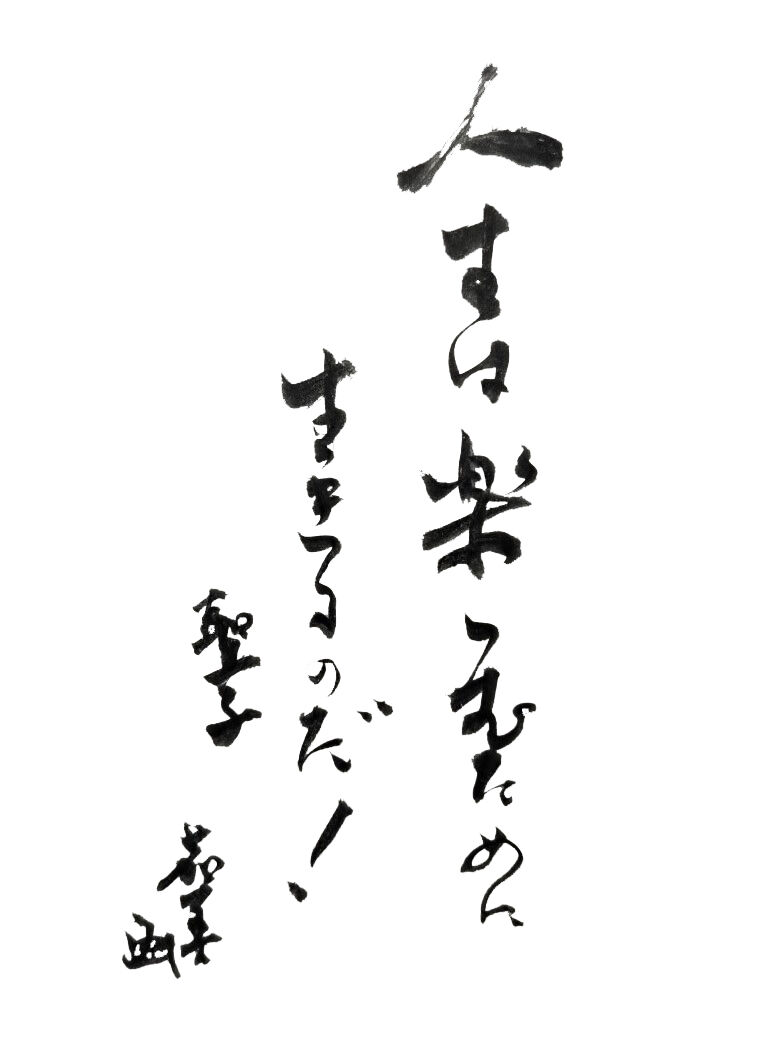 人生は楽しむために
生きるのだ!
聖子